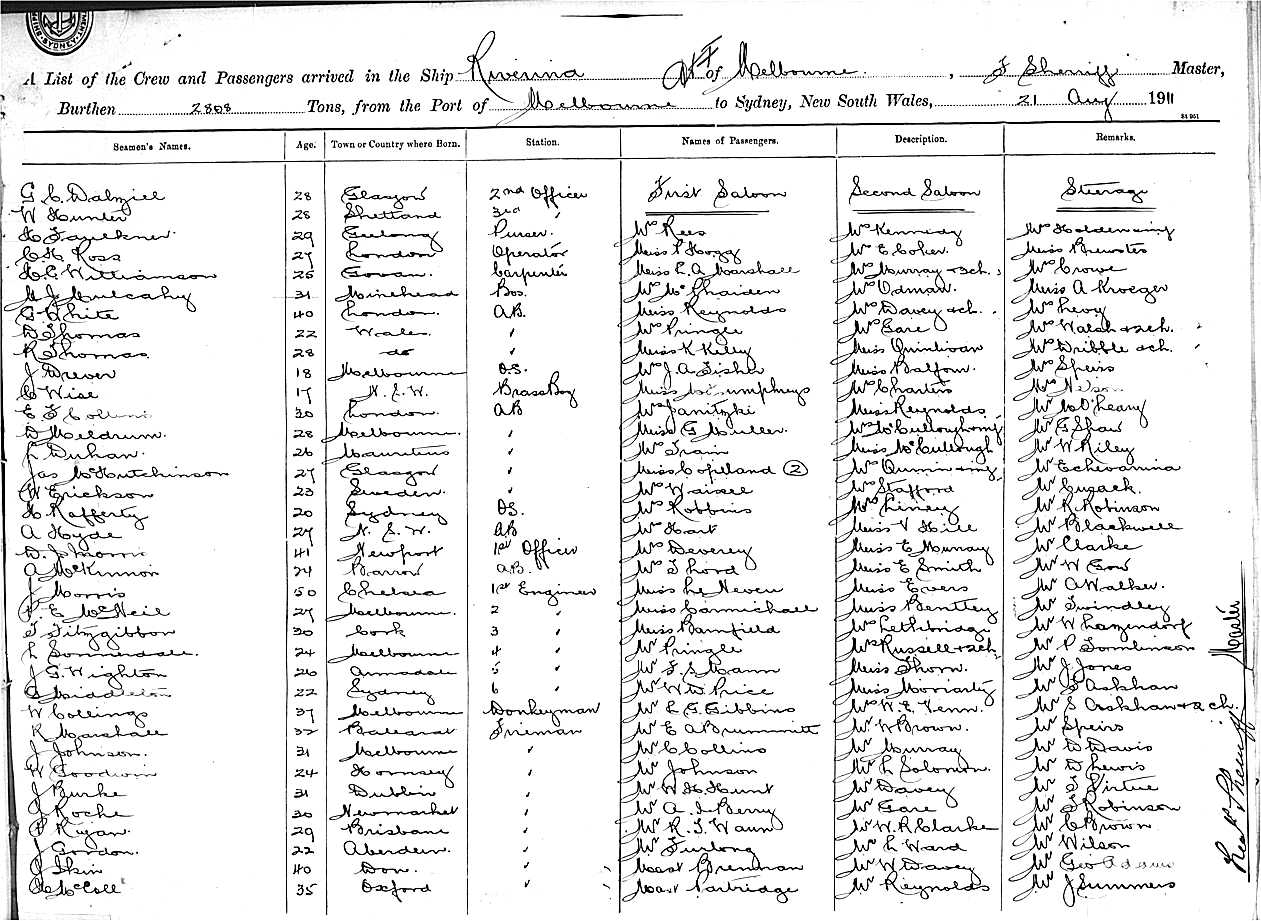 SHIPPING · SYDNEY
A List of the Crew and Passengers arrived in the Ship Riverina of Melbourne, F Sherriff Master,
Burthen 2808 Tons, from the Port of Melbourne to Sydney, New South Wales, 21 Aug 1911
Seamen's Names. Age. Town or Country where Born. Station. Names of Passengers. Description. Remarks.
G C Dalziel 28 Glasgow 2nd Officer First Saloon Second Saloon Steerage
W Hunter 28 Shetland 3rd "
H Faulkner 29 Geelong Purser Mrs Rees Mrs Kennedy Mrs Holdenwing
C H Ross 27 London Operator Miss P Hogg Mrs E Coker Miss Brewster
H C Williamson 25 Govan. Carpenter Miss L. A Marshall Mrs Murray + 2ch. Mrs Crowe
M J Mulcahy 31 Minehead Bos. Mrs McPhaiden Mrs Odman. Miss A Kroeger
G White 40 London. A.B. Miss Reynolds Mrs Davey + ch. Mrs Levy
D Thomas 22 Wales. " Mrs Pringle Mrs Gare Mrs Walsh + 2ch.
R Thomas 28 do " Miss K Kiley Miss Quinlivan Mrs Dribble + ch.
J Drever 18 Melbourne O.S. Mrs J A Fisher Miss Balfour. Mrs Speirs
C Wise 17 N. S. W. Brass Boy Miss Humphreys Mrs Charters Mrs Nelson
E F Collins 30 London. A B Mrs Janitzki Miss Reynolds Mr M O'Leary
D Meldrum. 28 Melbourne. " Miss G Muller. Mrs McCullough + inf Mr G Shaw
L Duhan. 26 Mauritius " Mrs Train Miss McCullough Mr W Riley
Jas McHutchinson 27 Glasgow " Miss Copeland (2) Mrs Quinn + inf Mr Echevarria
W Erickson 23 Sweden. " Mrs Mrs Stafford Mr Cusack.
H Rafferty 20 Sydney O.S. Mrs Robbins Mrs Liney Mr R Robinson
A Hyde 27 N. S. W. A B Mrs Hart Miss V Hill Mr Blackwell
D J Morris 41 Newport 1st Officer Mrs Deverey Miss E Murray Mr Clarke
A McKinnon 24 Barrow A.B. Mrs T Lord Miss E Smith Mr W Gow
J Morris 50 Chelsea 1st Engineer Miss Le Neveu Miss Evers Mr A Walker.
P E McNeil 27 Melbourne. 2 " Miss Carmichall Miss Bentley Mr Swindley
T Fitzgibbon 30 Cork 3 " Miss Bamfield Mrs Lethbridge Mr W Hazendorf
L Sonnerdale. 24 Melbourne 4 " Mr Pringle Mrs Russell + 2ch Mr P Tomlinson
J G. Wighton 26 Armadale 5 " Mr F. S Mann Miss Thorn. Mr J Jones
C Middleton 22 Sydney 6 " Mr W D Price Miss Moriarty Mr S Askhan
W Collings 37 Melbourne Donkeyman Mr L G. Gibbins Mr W. E Venn. Mr S + 2ch.
R Marshall 32 Ballarat Fireman Mr E A Brummitt Mr W Brown. Mr Speirs
J Johnson. 31 Melbourne " Mr C Collins Mr Murray Mr D Davis
W Goodwin 24 Hornsey " Mr Johnson Mr L Solomon. Mr D Lewis
J Burke 31 Dublin " Mr W H Hunt Mr Davey Mr S Virtue
J Roche 30 Newmarket " Mr A. J Berry Mr Gare Mr T Robinson
P Ryan. 29 Brisbane " Mr R. T Waun Mr W. R Clarke Mr C Brown.
J Gordon. 22 Aberdeen. " Mr Furlong Mr L Ward Mr Wilson
J Skin 40 Don. " Mast Brennan Mr W Davey Mr Geo Adams
A McColl 35 Oxford " Mast Partridge Mr Reynolds Mr J Summers
Master